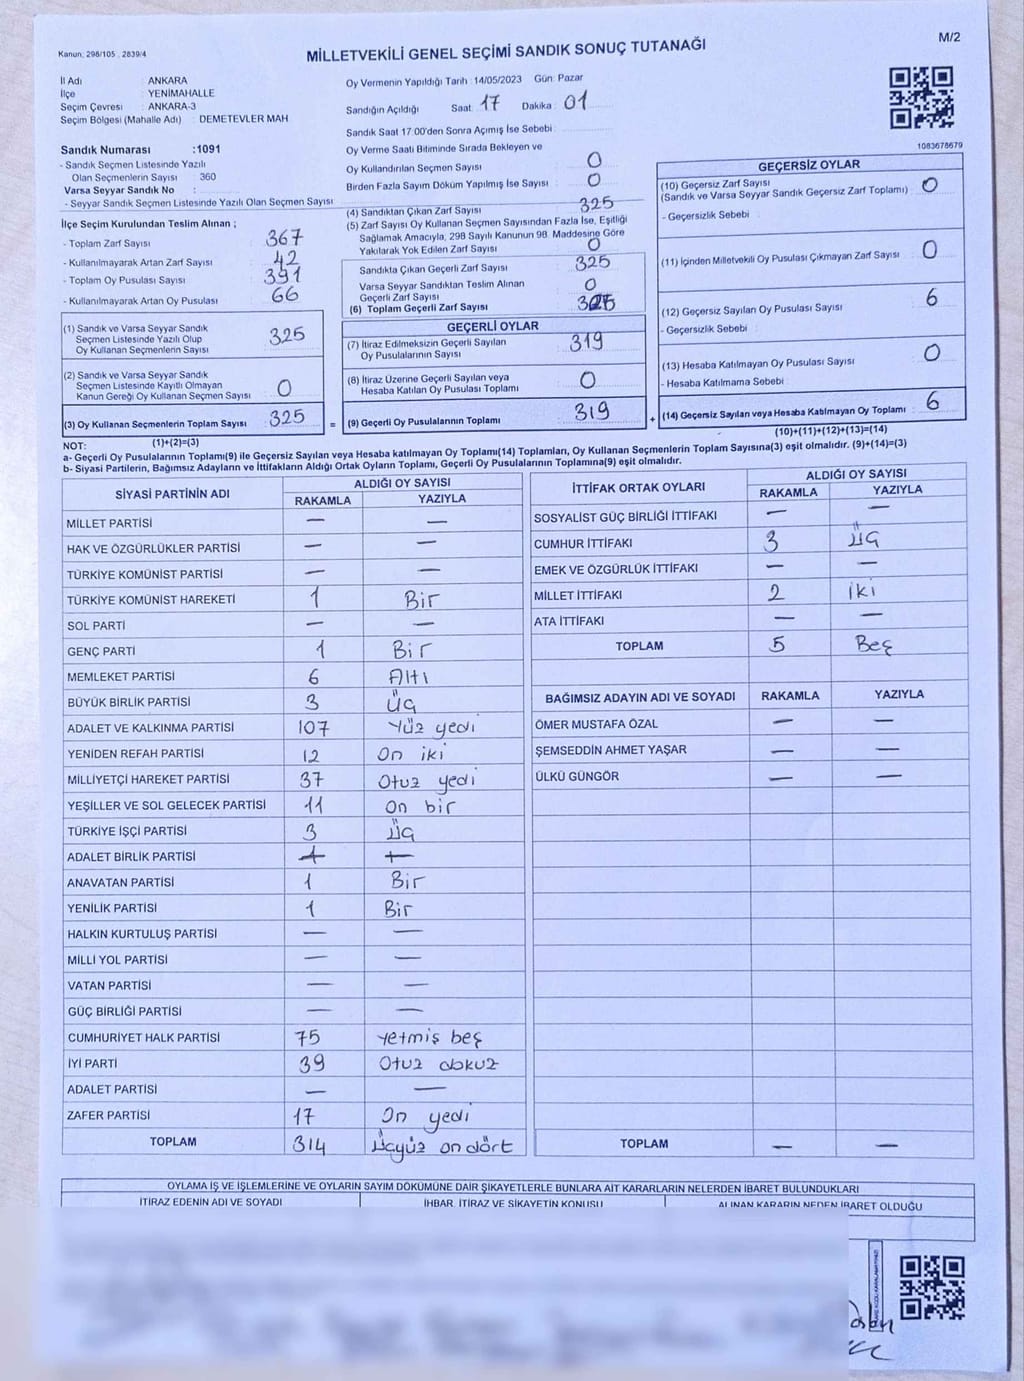 Kanun: 298/105 . 2839/4
MİLLETVEKİLİ GENEL SEÇİMİ SANDIK SONUÇ TUTANAĞI
M/2
İl Adı ANKARA
İlçe YENİMAHALLE
Seçim Çevresi ANKARA-3
Seçim Bölgesi (Mahalle Adı) DEMETEVLER MAH
Sandık Numarası :1091
- Sandık Seçmen Listesinde Yazılı
Olan Seçmenlerin Sayısı 360
Varsa Seyyar Sandık No :
- Seyyar Sandık Seçmen Listesinde Yazılı Olan Seçmen Sayısı
İlçe Seçim Kurulundan Teslim Alınan ;
- Toplam Zarf Sayısı 367
- Kullanılmayarak Artan Zarf Sayısı 42
- Toplam Oy Pusulası Sayısı 391
- Kullanılmayarak Artan Oy Pusulası 66
(1) Sandık ve Varsa Seyyar Sandık
Seçmen Listesinde Yazılı Olup
Oy Kullanan Seçmenlerin Sayısı 325
(2) Sandık ve Varsa Seyyar Sandık
Seçmen Listesinde Kayıtlı Olmayan
Kanun Gereği Oy Kullanan Seçmen Sayısı 0
(3) Oy Kullanan Seçmenlerin Toplam Sayısı 325 =
Oy Vermenin Yapıldığı Tarih :14/05/2023 Gün: Pazar
Sandığın Açıldığı Saat: 17 Dakika : 01
Sandık Saat 17:00'den Sonra Açımış İse Sebebi :
Oy Verme Saati Bitiminde Sırada Bekleyen ve
Oy Kullandırılan Seçmen Sayısı 0
Birden Fazla Sayım Döküm Yapılmış İse Sayısı 0
(4) Sandıktan Çıkan Zarf Sayısı 325
(5) Zarf Sayısı Oy Kullanan Seçmen Sayısından Fazla İse, Eşitliği
Sağlamak Amacıyla, 298 Sayılı Kanunun 98. Maddesine Göre
Yakılarak Yok Edilen Zarf Sayısı 0
Sandıkta Çıkan Geçerli Zarf Sayısı 325
Varsa Seyyar Sandıktan Teslim Alınan
Geçerli Zarf Sayısı 0
(6) Toplam Geçerli Zarf Sayısı 325
GEÇERLİ OYLAR
(7) İtiraz Edilmeksizin Geçerli Sayılan
Oy Pusulalarının Sayısı 319
(8) İtiraz Üzerine Geçerli Sayılan veya
Hesaba Katılan Oy Pusulası Toplamı 0
(9) Geçerli Oy Pusulalarının Toplamı 319 +
1083678679
GEÇERSİZ OYLAR
(10) Geçersiz Zarf Sayısı
(Sandık ve Varsa Seyyar Sandık Geçersiz Zarf Toplamı) 0
- Geçersizlik Sebebi :
(11) İçinden Milletvekili Oy Pusulası Çıkmayan Zarf Sayısı 0
(12) Geçersiz Sayılan Oy Pusulası Sayısı 6
- Geçersizlik Sebebi
(13) Hesaba Katılmayan Oy Pusulası Sayısı 0
- Hesaba Katılmama Sebebi
(14) Geçersiz Sayılan veya Hesaba Katılmayan Oy Toplamı 6
NOT: (1)+(2)=(3) (10)+(11)+(12)+(13)=(14)
a- Geçerli Oy Pusulalarının Toplamı(9) ile Geçersiz Sayılan veya Hesaba katılmayan Oy Toplamı(14) Toplamları, Oy Kullanan Seçmenlerin Toplam Sayısına(3) eşit olmalıdır. (9)+(14)=(3)
b- Siyasi Partilerin, Bağımsız Adayların ve İttifakların Aldığı Ortak Oyların Toplamı, Geçerli Oy Pusulalarının Toplamına(9) eşit olmalıdır.
SİYASİ PARTİNİN ADI ALDIĞI OY SAYISI
RAKAMLA YAZIYLA
MİLLET PARTİSİ — —
HAK VE ÖZGÜRLÜKLER PARTİSİ — —
TÜRKİYE KOMÜNİST PARTİSİ — —
TÜRKİYE KOMÜNİST HAREKETİ 1 Bir
SOL PARTİ — —
GENÇ PARTİ 1 Bir
MEMLEKET PARTİSİ 6 Altı
BÜYÜK BİRLİK PARTİSİ 3 Üç
ADALET VE KALKINMA PARTİSİ 107 Yüz yedi
YENİDEN REFAH PARTİSİ 12 On iki
MİLLİYETÇİ HAREKET PARTİSİ 37 Otuz yedi
YEŞİLLER VE SOL GELECEK PARTİSİ 11 On bir
TÜRKİYE İŞÇİ PARTİSİ 3 Üç
ADALET BİRLİK PARTİSİ — —
ANAVATAN PARTİSİ 1 Bir
YENİLİK PARTİSİ 1 Bir
HALKIN KURTULUŞ PARTİSİ — —
MİLLİ YOL PARTİSİ — —
VATAN PARTİSİ — —
GÜÇ BİRLİĞİ PARTİSİ — —
CUMHURİYET HALK PARTİSİ 75 Yetmiş beş
İYİ PARTİ 39 Otuz dokuz
ADALET PARTİSİ — —
ZAFER PARTİSİ 17 On yedi
TOPLAM 314 Üçyüz on dört
İTTİFAK ORTAK OYLARI ALDIĞI OY SAYISI
RAKAMLA YAZIYLA
SOSYALİST GÜÇ BİRLİĞİ İTTİFAKI — —
CUMHUR İTTİFAKI 3 Üç
EMEK VE ÖZGÜRLÜK İTTİFAKI — —
MİLLET İTTİFAKI 2 iki
ATA İTTİFAKI — —
TOPLAM 5 Beş
BAĞIMSIZ ADAYIN ADI VE SOYADI RAKAMLA YAZIYLA
ÖMER MUSTAFA ÖZAL — —
ŞEMSEDDİN AHMET YAŞAR — —
ÜLKÜ GÜNGÖR — —
TOPLAM — —
OYLAMA İŞ VE İŞLEMLERİNE VE OYLARIN SAYIM DÖKÜMÜNE DAİR ŞİKAYETLERLE BUNLARA AİT KARARLARIN NELERDEN İBARET BULUNDUKLARI
İTİRAZ EDENİN ADI VE SOYADI İHBAR, İTİRAZ VE ŞİKAYETİN KONUSU ALINAN KARARIN NEDEN İBARET OLDUĞU